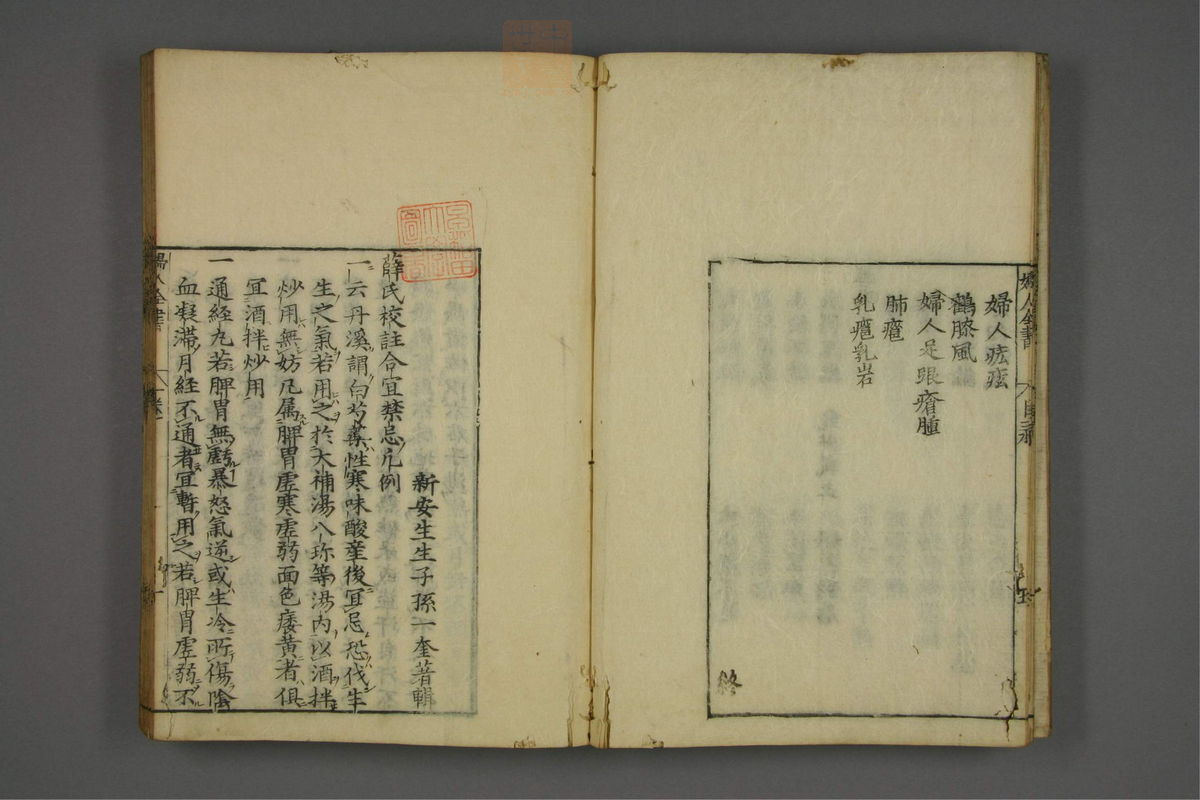 婦人痃痃
鶴膝風
婦人足跟瘡腫
肺癰
乳癰乳岩
終
薛氏校註合宜禁忌凡例
新安生生子孫一奎著輯
一云丹溪謂白芍藥性寒味酸產後宜忌恐伐生
生之氣若用之於大補湯八珎等湯内以酒拌
炒用無妨凡属脾胃虛寒虛弱面色痿黄者俱
宜酒拌炒用
一通經丸若脾胃無虧暴怒氣逆或生冷所傷陰
血凝滯月經不通者宜暫用之若脾胃虛弱不